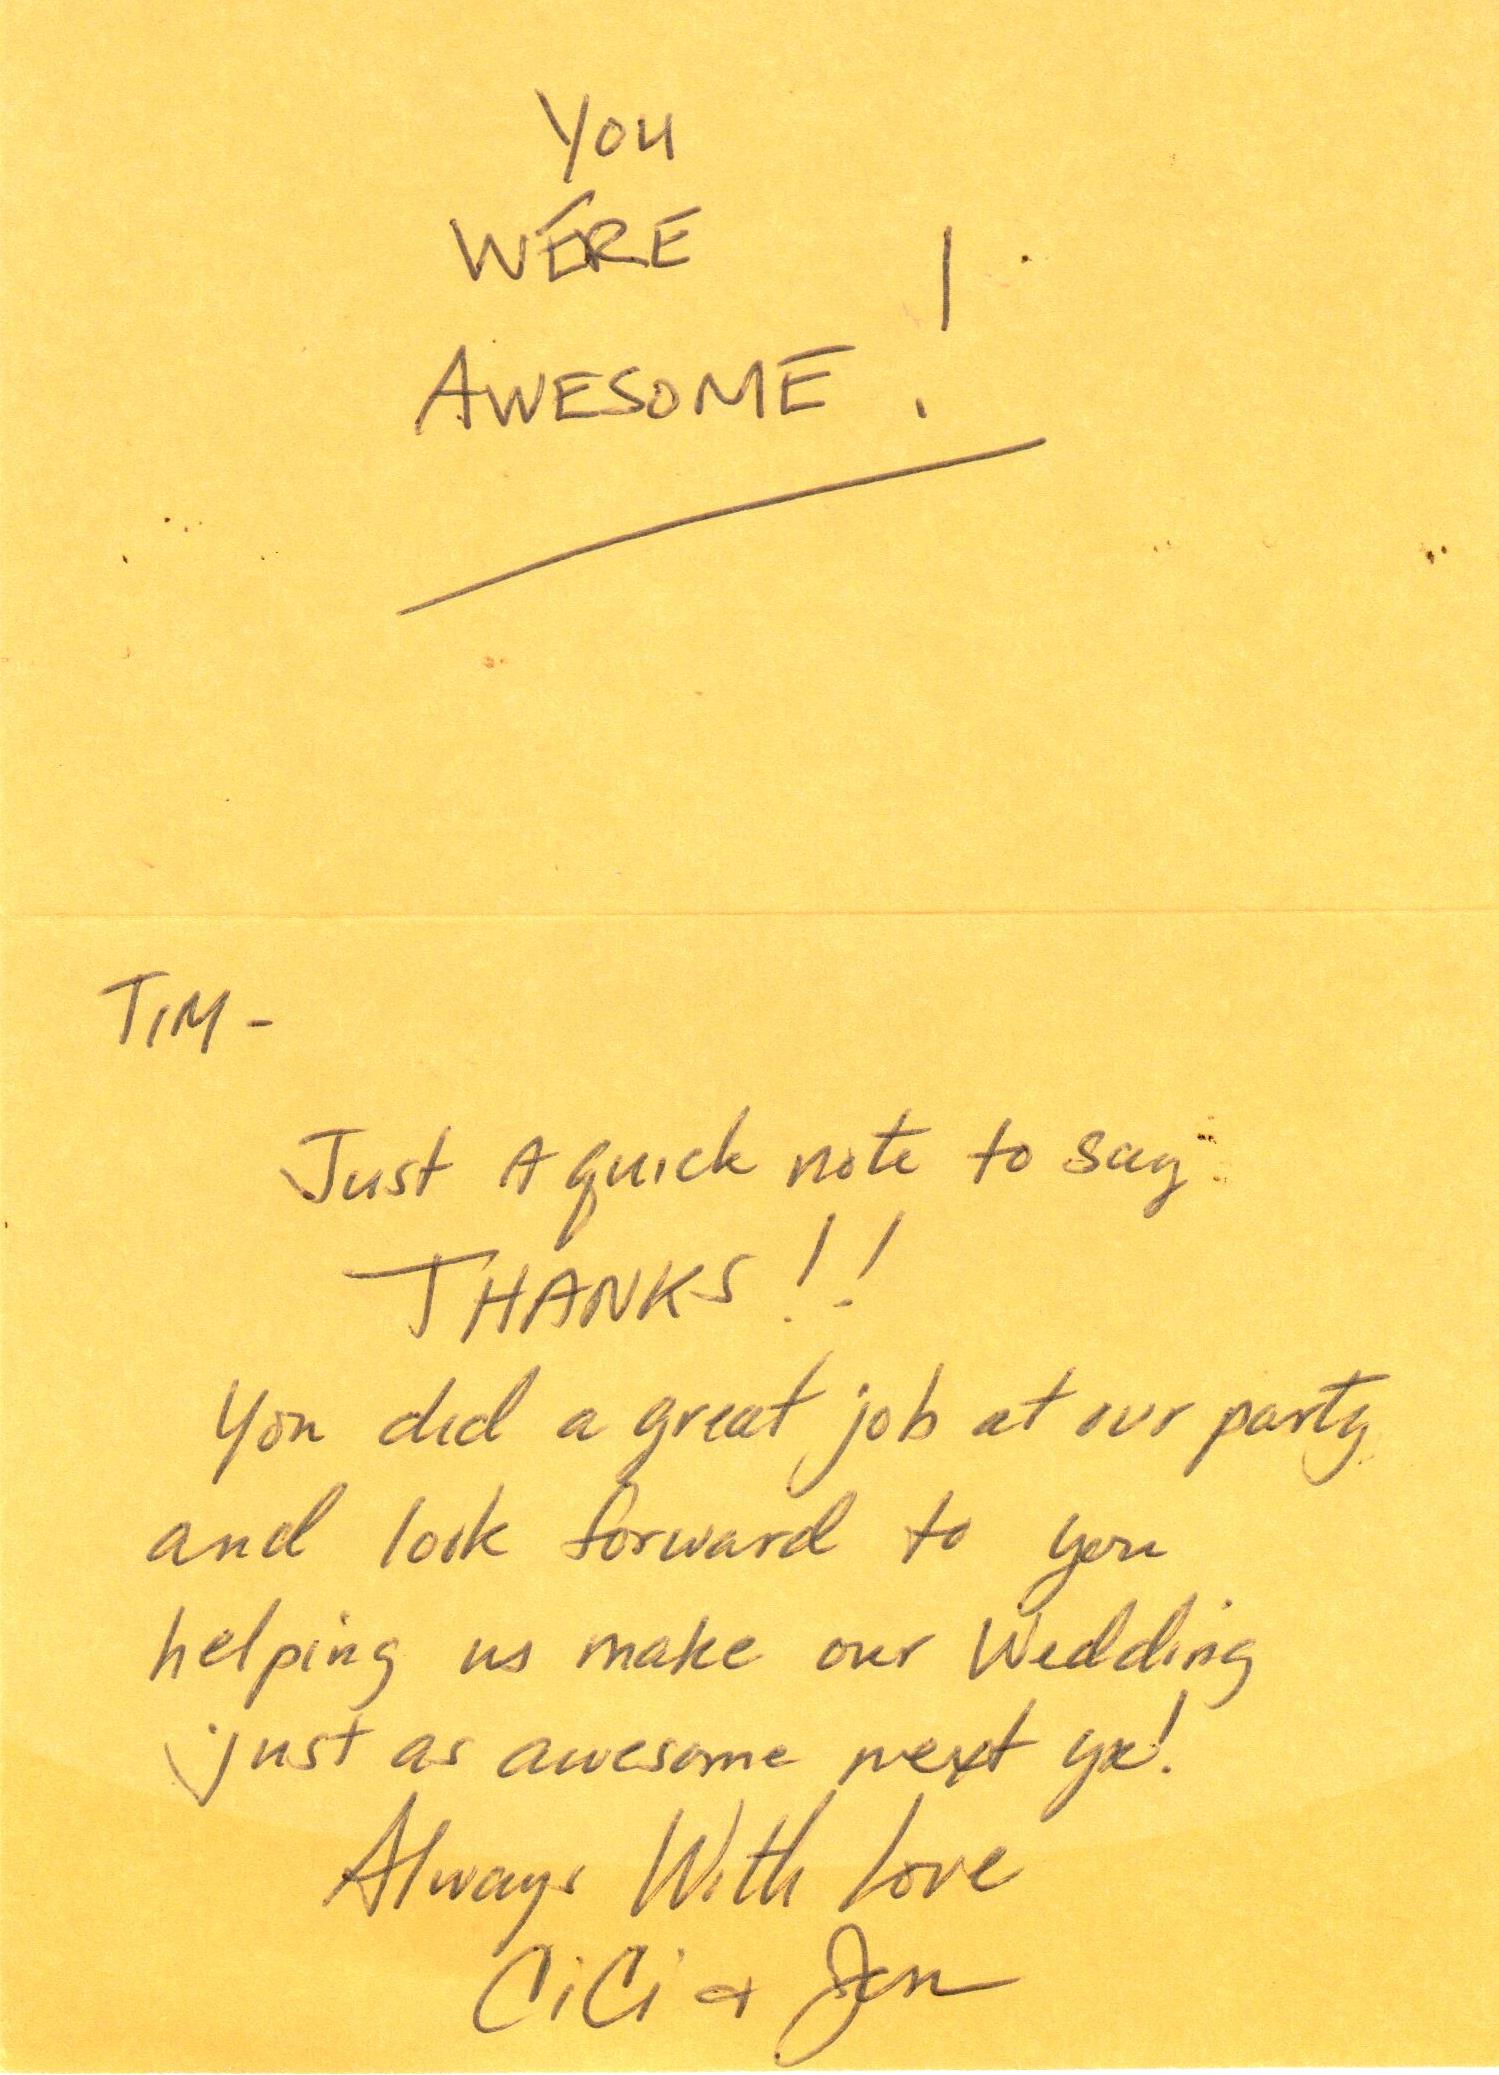 You
WERE
AWESOME!
TIM -
Just A quick note to say
THANKS!!
You did a great job at our party
and look forward to you
helping us make our Wedding
just as awesome next yr!
Always With Love
CiCi +